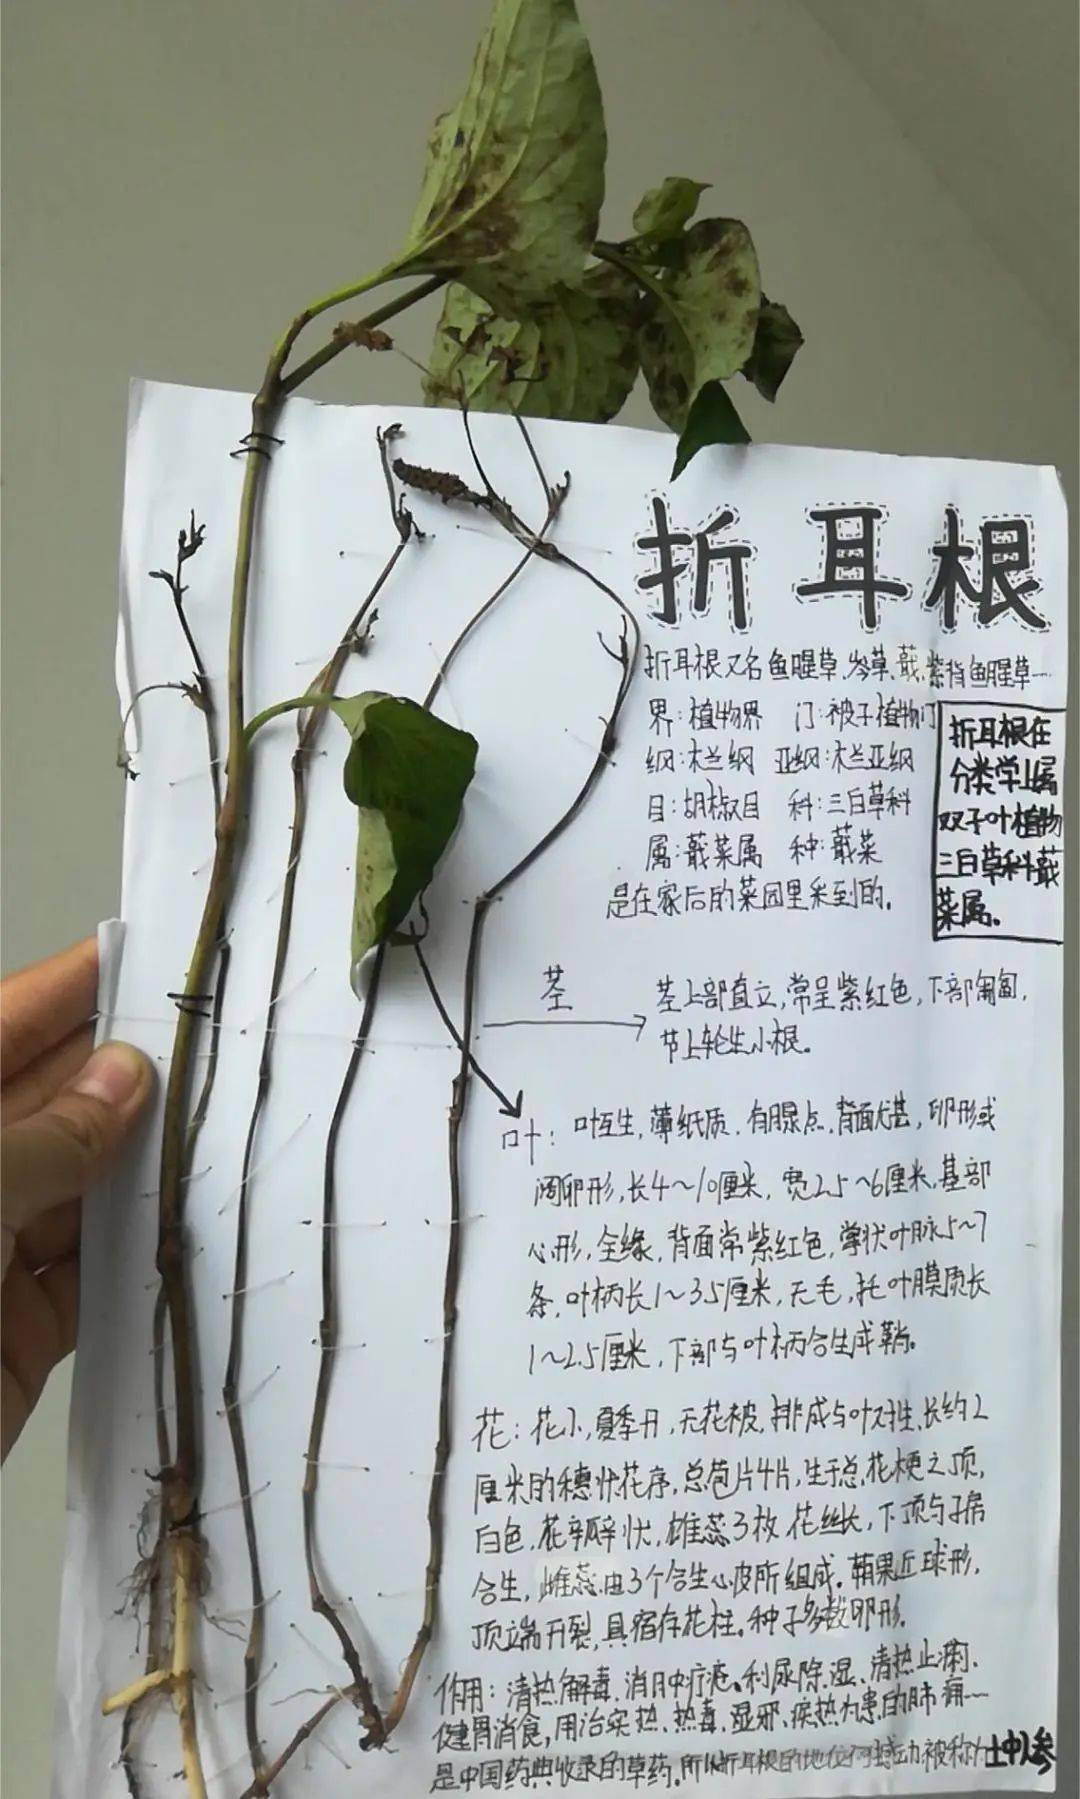 折耳根
折耳根又名鱼腥草、岑草、蕺、紫背鱼腥草…
界:植物界 门:被子植物门
纲:木兰纲 亚纲:木兰亚纲
目:胡椒目 科:三白草科
属:蕺菜属 种:蕺菜
是在家后的菜园里采到的。
折耳根在
分类学上属
双子叶植物
三白草科蕺
菜属。
茎
茎上部直立,常呈紫红色,下部匍匐,
节上轮生小根。
叶:叶互生,薄纸质,有腺点,背面尤甚,卵形或
阔卵形,长4~10厘米,宽2.5~6厘米,基部
心形,全缘,背面常紫红色,掌状叶脉5~7
条,叶柄长1~3.5厘米,无毛,托叶膜质长
1~2.5厘米,下部与叶柄合生成鞘。
花:花小,夏季开,无花被,排成与叶对生、长约2
厘米的穗状花序,总苞片4片,生于总花梗之顶,
白色,花瓣状,雄蕊3枚,花丝长,下顶与子房
合生,雌蕊由3个合生心皮所组成。蒴果近球形,
顶端开裂,具宿存花柱。种子多数卵形。
作用:清热解毒、消肿疗疮、利尿除湿、清热止痢、
健胃消食,用治实热、热毒、湿邪、疾热为患的肺痈…
是中国药典收录的草药。所以折耳根的地位可撼动被称为土中人参